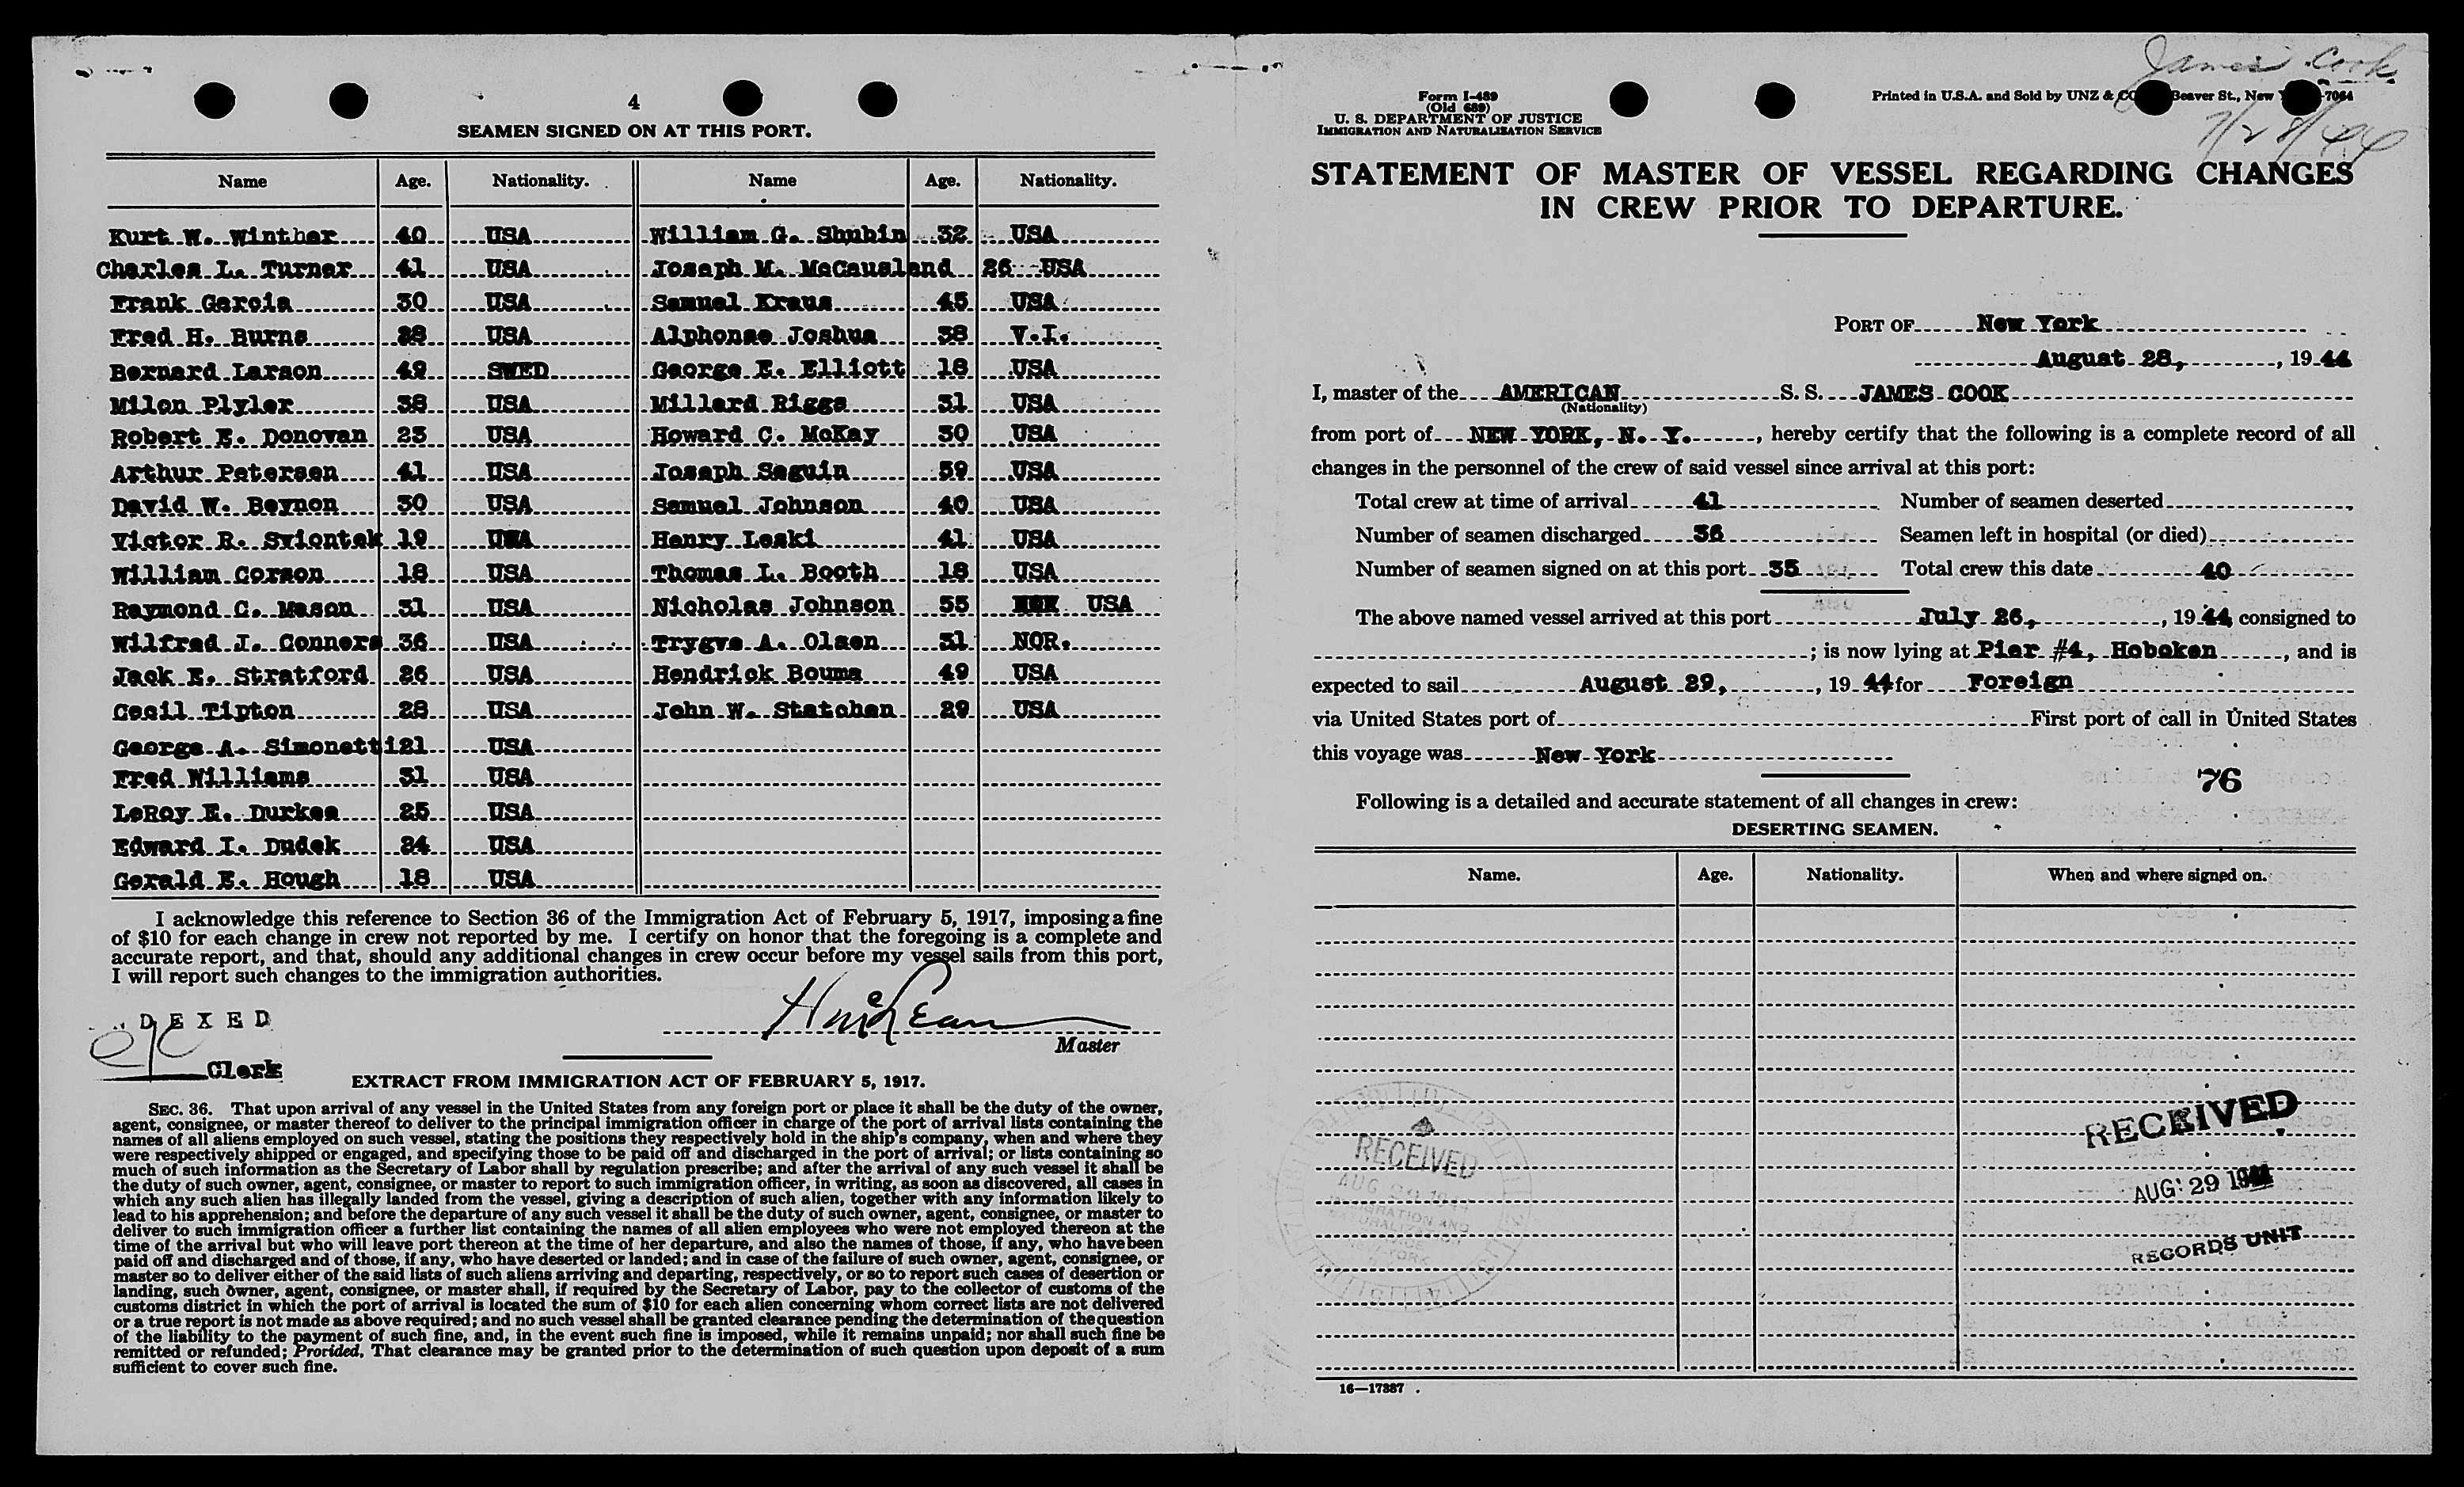 4
SEAMEN SIGNED ON AT THIS PORT.
Name Age. Nationality. Name Age. Nationality.
Kurt W. Winther 40 USA William G. Shubin 32 USA
Charles L. Turner 41 USA Joseph M. McCausland 26 USA
Frank Garcia 30 USA Samuel Kraus 45 USA
Fred H. Burns 28 USA Alphonse Joshua 38 V.I.
Bernard Larson 49 SWED George E. Elliott 18 USA
Milon Plyler 38 USA Millard Riggs 31 USA
Robert E. Donovan 23 USA Howard C. McKay 30 USA
Arthur Petersen 41 USA Joseph Seguin 59 USA
David W. Beynon 30 USA Samuel Johnson 40 USA
Victor R. Sviontek 19 USA Henry Leski 41 USA
William Corson 18 USA Thomas L. Booth 18 USA
Raymond C. Mason 31 USA Nicholas Johnson 55 USA
Wilfred J. Conners 36 USA Trygve A. Olsen 31 NOR.
Jack E. Stratford 26 USA Hendrick Bouma 49 USA
Cecil Tipton 28 USA John W. Statchen 29 USA
George A. Simonetti 21 USA
Fred Williams 31 USA
LeRoy E. Durkee 25 USA
Edward I. Dudek 24 USA
Gerald E. Hough 18 USA
I acknowledge this reference to Section 36 of the Immigration Act of February 5, 1917, imposing a fine
of $10 for each change in crew not reported by me. I certify on honor that the foregoing is a complete and
accurate report, and that, should any additional changes in crew occur before my vessel sails from this port,
I will report such changes to the immigration authorities.
DEXED
Clerk
Master
EXTRACT FROM IMMIGRATION ACT OF FEBRUARY 5, 1917.
SEC. 36. That upon arrival of any vessel in the United States from any foreign port or place it shall be the duty of the owner,
agent, consignee, or master thereof to deliver to the principal immigration officer in charge of the port of arrival lists containing the
names of all aliens employed on such vessel, stating the positions they respectively hold in the ship's company, when and where they
were respectively shipped or engaged, and specifying those to be paid off and discharged in the port of arrival; or lists containing so
much of such information as the Secretary of Labor shall by regulation prescribe; and after the arrival of any such vessel it shall be
the duty of such owner, agent, consignee, or master to report to such immigration officer, in writing, as soon as discovered, all cases in
which any such alien has illegally landed from the vessel, giving a description of such alien, together with any information likely to
lead to his apprehension; and before the departure of any such vessel it shall be the duty of such owner, agent, consignee, or master to
deliver to such immigration officer a further list containing the names of all alien employees who were not employed thereon at the
time of the arrival but who will leave port thereon at the time of her departure, and also the names of those, if any, who have been
paid off and discharged and of those, if any, who have deserted or landed; and in case of the failure of such owner, agent, consignee, or
master so to deliver either of the said lists of such aliens arriving and departing, respectively, or so to report such cases of desertion or
landing, such owner, agent, consignee, or master shall, if required by the Secretary of Labor, pay to the collector of customs of the
customs district in which the port of arrival is located the sum of $10 for each alien concerning whom correct lists are not delivered
or a true report is not made as above required; and no such vessel shall be granted clearance pending the determination of the question
of the liability to the payment of such fine, and, in the event such fine is imposed, while it remains unpaid; nor shall such fine be
remitted or refunded; Provided, That clearance may be granted prior to the determination of such question upon deposit of a sum
sufficient to cover such fine.
James Cook
7/28/44
Form I-489
(Old 689)
U. S. DEPARTMENT OF JUSTICE
IMMIGRATION AND NATURALIZATION SERVICE
Printed in U.S.A. and Sold by UNZ & CO Beaver St., New 7064
STATEMENT OF MASTER OF VESSEL REGARDING CHANGES
IN CREW PRIOR TO DEPARTURE.
PORT OF New York
August 28, 1944
I, master of the AMERICAN S. S. JAMES COOK
(Nationality)
from port of NEW YORK, N. Y., hereby certify that the following is a complete record of all
changes in the personnel of the crew of said vessel since arrival at this port:
Total crew at time of arrival 41 Number of seamen deserted
Number of seamen discharged 36 Seamen left in hospital (or died)
Number of seamen signed on at this port 35 Total crew this date 40
The above named vessel arrived at this port July 26, 1944 consigned to
; is now lying at Pier #4, Hoboken, and is
expected to sail August 29, 1944 for Foreign
via United States port of First port of call in United States
this voyage was New York
76
Following is a detailed and accurate statement of all changes in crew:
DESERTING SEAMEN.
Name. Age. Nationality. When and where signed on.
RECEIVED
AUG 29 1944
RECORDS UNIT
RECEIVED
AUG 29 1944
16—17387